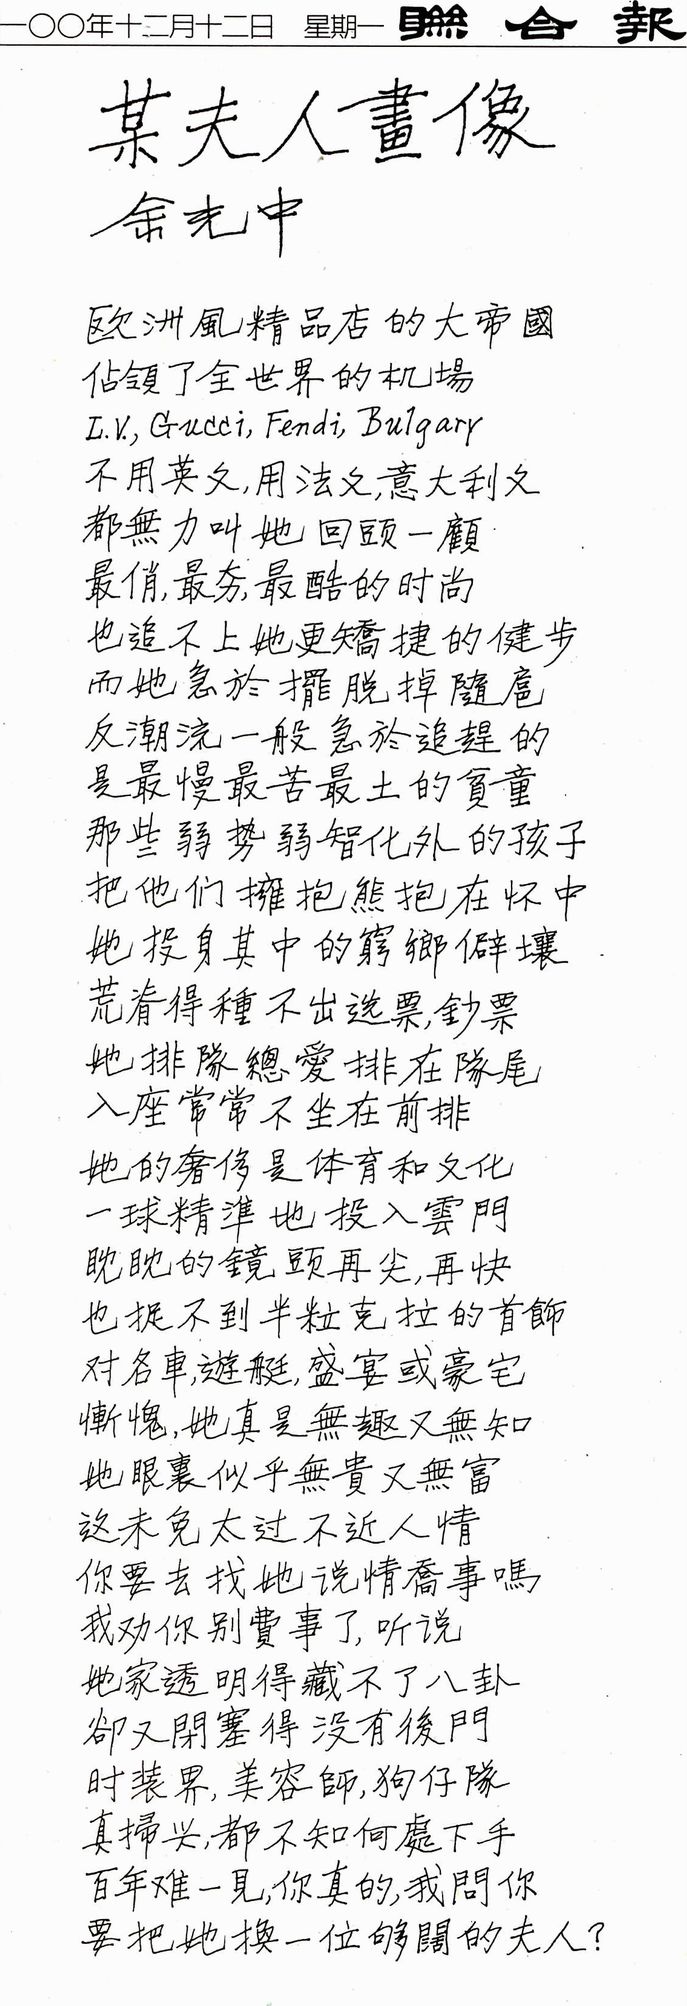 一〇〇年十二月十二日　星期一　聯合報
某夫人畫像
余光中
歐洲風精品店的大帝國
佔領了全世界的机場
L.V., Gucci, Fendi, Bulgary
不用英文,用法文,意大利文
都無力叫她回頭一顧
最俏,最夯,最酷的时尚
也追不上她更矯捷的健步
而她急於擺脫掉隨扈
反潮流一般急於追趕的
是最慢最苦最土的貧童
那些弱势弱智化外的孩子
把他们擁抱熊抱在怀中
她投身其中的窮鄉僻壤
荒脊得種不出选票,鈔票
她排隊總愛排在隊尾
入座常常不坐在前排
她的奢侈是体育和文化
一球精準地投入雲門
眈眈的鏡頭再尖,再快
也捉不到半粒克拉的首飾
对名車,遊艇,盛宴或豪宅
慚愧,她真是無趣又無知
她眼裏似乎無貴又無富
这未免太过不近人情
你要去找她说情喬事嗎
我劝你别費事了,听说
她家透明得藏不了八卦
卻又閉塞得没有後門
时装界,美容師,狗仔隊
真掃兴,都不知何處下手
百年难一見,你真的,我問你
要把她換一位够闊的夫人?